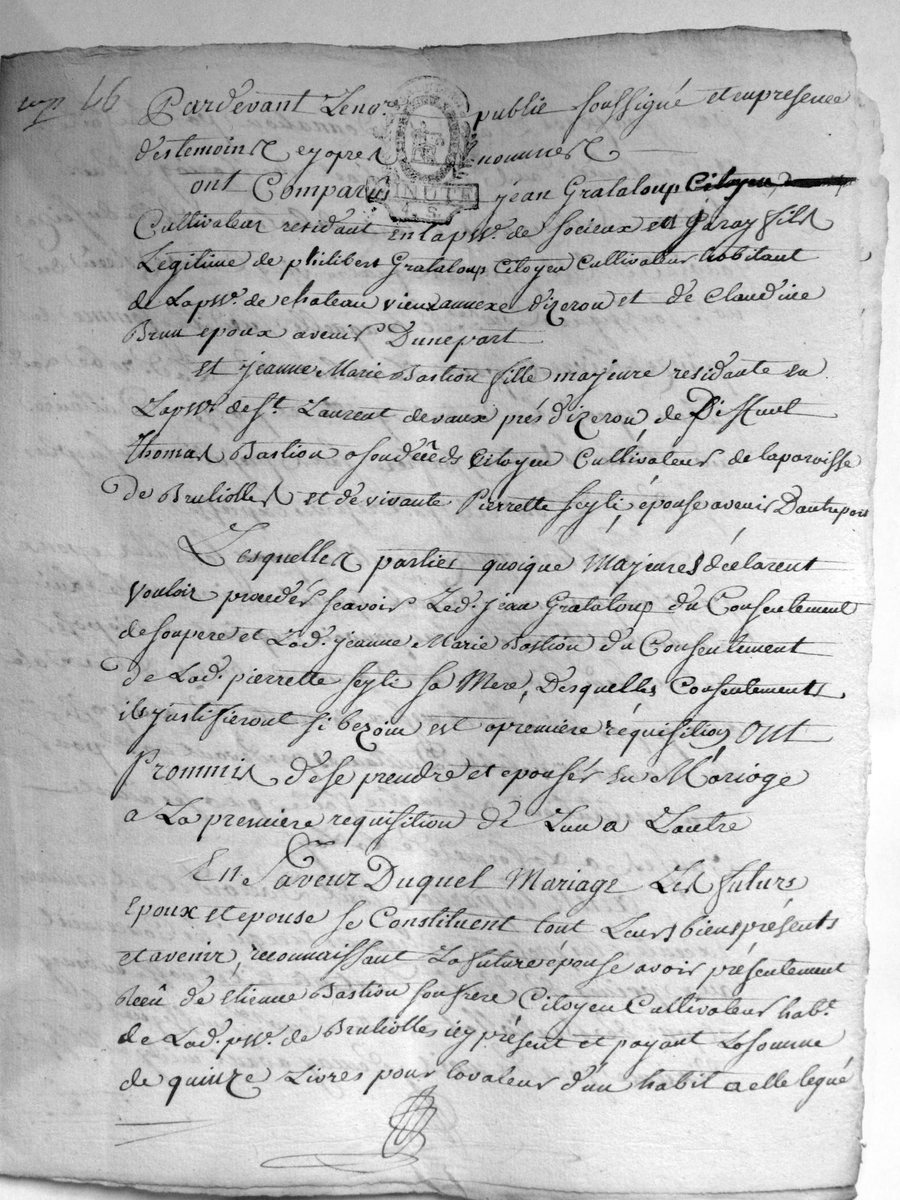 46
Pardevant Lenore. public soussigné et en presence
destemoins cy apres nommes
MINUTE
ont Comparus jean Grataloup Citoyen
Cultivateur residant en la psse. de Socieux et Jaray fils
Légitime de philibert Grataloup Citoyen Cultivateur habitant
de La psse. de chateau vieux annexe d'izeron et de Claudine
Brun epoux avenir Dunepart
Et jeanne Marie Bastion fille majeure residante en
La psse. de St. Laurent devaux prés d'izeron, de
thomas Bastion Citoyen Cultivateur de la paroisse
de Bruliolles et de vivante Pierrette Seyli, épouse avenir Dautrepart
Lesquelles parties quoique Majeures déclarent
vouloir proceder scavoir Led. jean Grataloup du Consentement
de son pere et Lad. jeanne Marie Bastion du Consentement
de Lad. pierrette Seyli sa Mere, Desquelles Consentements
ils justifieront si bezoin est a premiere réquisition ont
Prommis de se prendre et epouser en Mariage
a La premiere requisition de Lun a Lautre
En faveur Duquel Mariage Les futurs
epoux et epouse se Constituent tout Leurs biens présents
et avenir, reconnaissant La future épouse avoir présentement
Receu de Etienne Bastion son frere Citoyen Cultivateur habt.
de Lad. psse. de Bruliolles icy présent et payant La somme
de quinze Livres pour la valeur d'un habit a elle legué